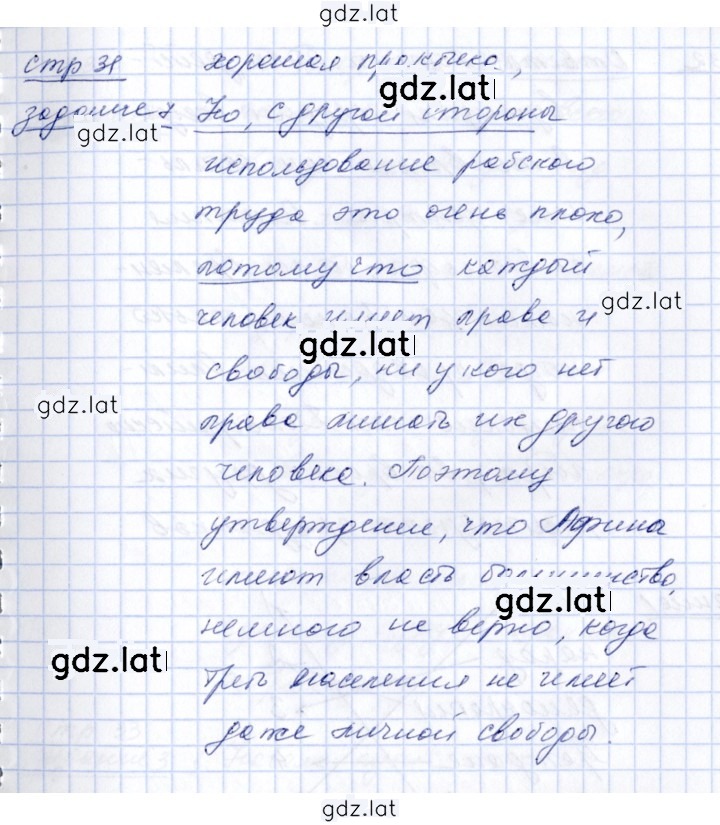 gdz.lat
стр 31 хорошая практика,
gdz.lat
задание 7 Но, с другой стороны
gdz.lat
использование рабского
труда это очень плохо,
потому что каждый
gdz.lat
человек имеет права и
gdz.lat
свободы, ни у кого нет
gdz.lat
права лишать их другого
человека. Поэтому
утверждение, что Афина
имеют власть
gdz.lat
немного не верно, когда
gdz.lat
треть населения не имеет
даже личной свободы.
gdz.lat